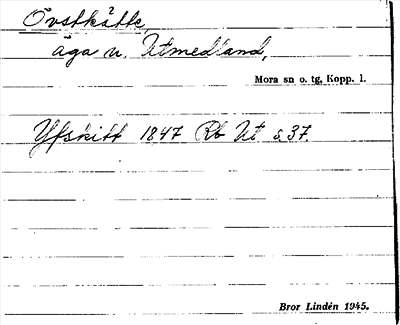 Övstkätte,
äga u. Utmedland,
Mora sn o. tg, Kopp. l.
Yfskift 1847 Rb Ut s.37.
Bror Lindén 1945.